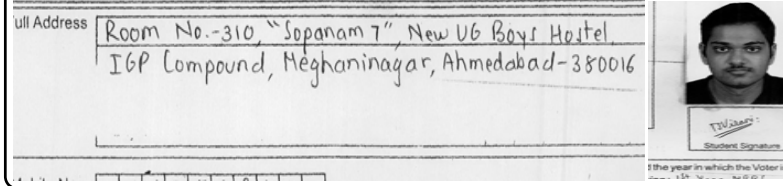 Full Address
Room No.-310, "Sopanam 7", New UG Boys Hostel
IGP Compound, Meghaninagar, Ahmedabad-380016
Student Signature
the year in which the Voter